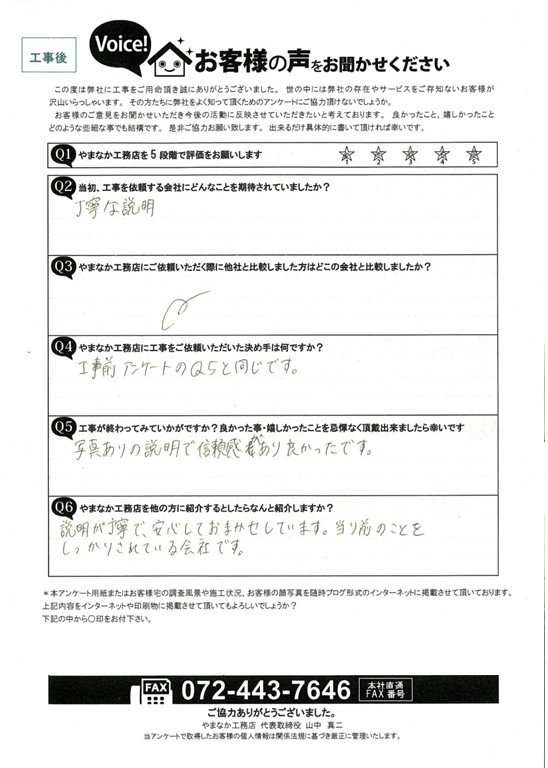 工事後
Voice!
お客様の声をお聞かせください
この度は弊社に工事をご用命頂き誠にありがとうございました。 世の中には弊社の存在やサービスをご存知ないお客様が
沢山いらっしゃいます。 その方たちに弊社をよく知って頂くためのアンケートにご協力頂けないでしょうか。
お客様のご意見をお聞かせいただき今後の活動に反映させていただきたいと考えております。 良かったこと、嬉しかったこと
どのような些細な事でも結構です。 是非ご協力お願い致します。 出来るだけ具体的に書いて頂ければ幸いです。
Q1 やまなか工務店を5段階で評価をお願いします
1 2 3 4 5
Q2 当初、工事を依頼する会社にどんなことを期待されていましたか？
丁寧な説明
Q3 やまなか工務店にご依頼いただく際に他社と比較しました方はどこの会社と比較しましたか？
Q4 やまなか工務店に工事をご依頼いただいた決め手は何ですか？
工事前アンケートのQ5と同じです。
Q5 工事が終わってみていかがですか？良かった事・嬉しかったことを忌憚なく頂戴出来ましたら幸いです
写真ありの説明で信頼感があり良かったです。
Q6 やまなか工務店を他の方に紹介するとしたらなんと紹介しますか？
説明が丁寧で、安心しておまかせしています。当り前のことを
しっかりされている会社です。
＊本アンケート用紙またはお客様宅の調査風景や施工状況、お客様の顔写真を随時ブログ形式のインターネットに掲載させて頂いております。
上記内容をインターネットや印刷物に掲載させて頂いてもよろしいでしょうか？
下記の中から〇印をお付下さい。
FAX 072-443-7646 本社直通 FAX番号
ご協力ありがとうございました。
やまなか工務店 代表取締役 山中 真二
当アンケートで取得したお客様の個人情報は関係法規に基づき厳正に管理いたします。